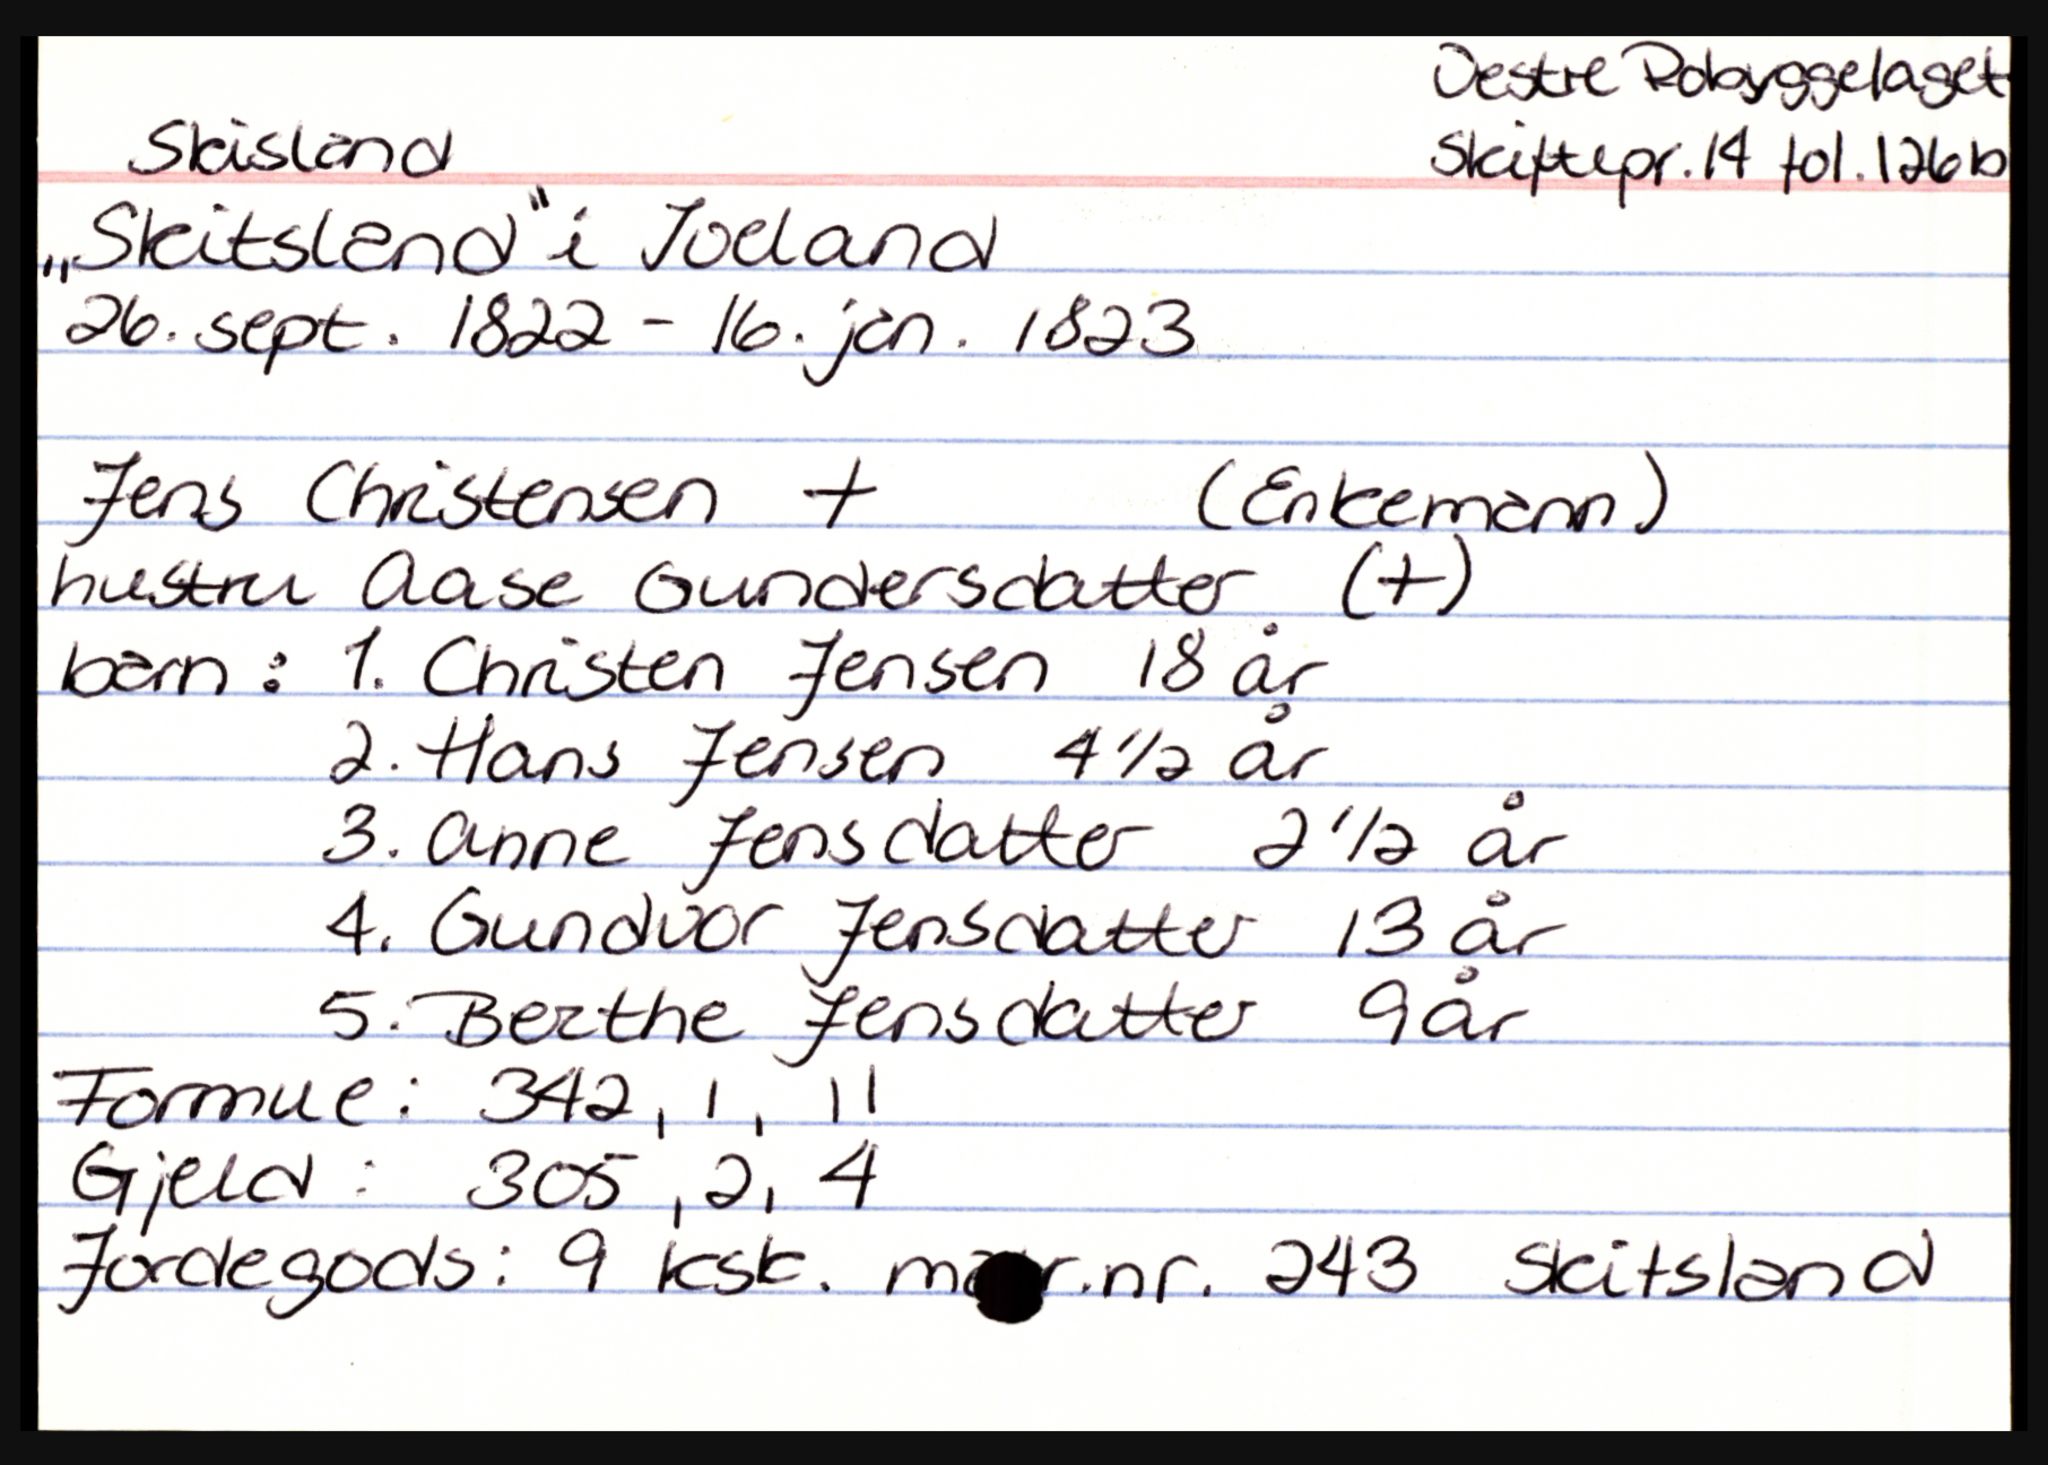 Vestre Robyggelaget
Skisland
Skiftepr. 14 fol. 126b
„Skitsland" i Iveland
26. sept. 1822 - 16. jan. 1823
Jens Christensen + (Enkemann)
hustru Aase Gundersdatter (+)
barn: 1. Christen Jensen 18 år
2. Hans Jensen 4 1/2 år
3. Anne Jensdatter 2 1/2 år
4. Gundvor Jensdatter 13 år
5. Berthe Jensdatter 9 år
Formue: 342, 1, 11
Gjeld: 305, 2, 4
Jordegods: 9 ksk. matr.nr. 243 Skitsland